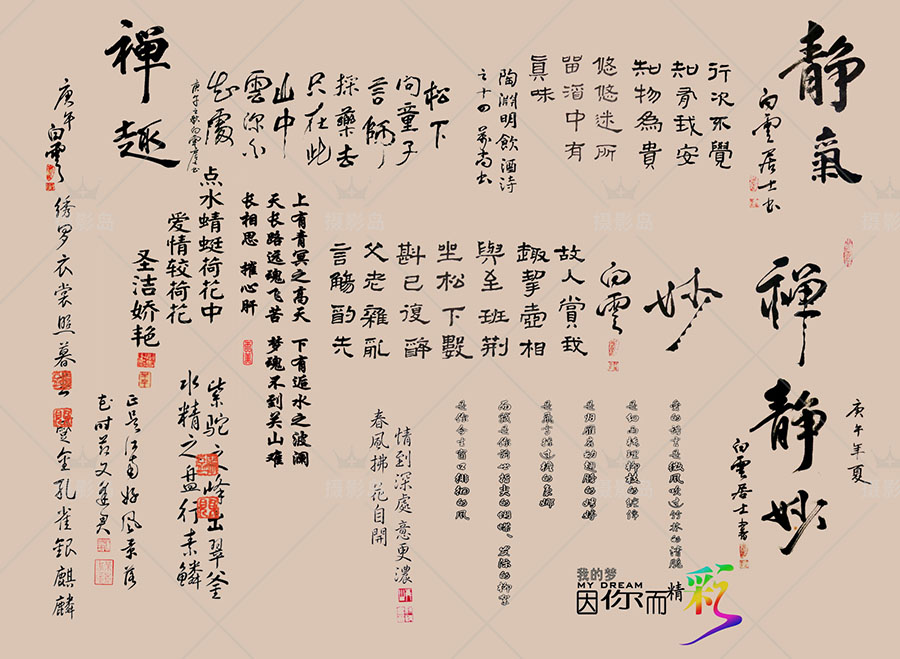 靜氣
白雲居士书
行次不覺
知有我安
知物為貴
悠悠迷所
留酒中有
眞味
陶淵明飲酒诗
之十四
松下
問童子
言師
採藥去
只在此
山中
雲深不
知處
禪趣
庚午
白雲
禪靜妙
庚午年夏
白雲居士書
妙
白雲
故人賞我
趣挈壺相
與至班荆
坐松下數
斟已復醉
父老雜亂
言觴酌失
上有青冥之高天 下有渌水之波澜
天长路远魂飞苦 梦魂不到关山难
长相思 摧心肝
点水蜻蜓荷花中
爱情较荷花
圣洁娇艳
绣罗衣裳照暮
蹙金孔雀银麒麟
紫驼之峰出翠釜
水精之盘行素鳞
正是江南好风景落
花时节又逢君
情到深處意更濃
春風拂花自開
我的梦
MY DREAM
因你而精彩
摄影岛